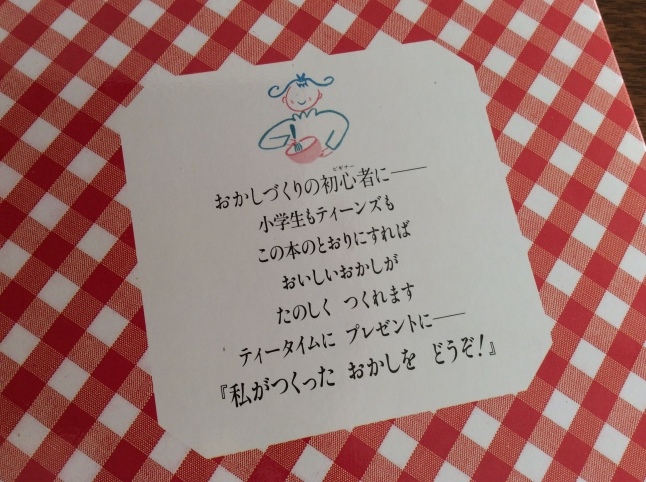 おかしづくりの初心者に――
ビギナー
小学生もティーンズも
この本のとおりにすれば
おいしいおかしが
たのしく つくれます
ティータイムに プレゼントに――
『私がつくった おかしを どうぞ!』